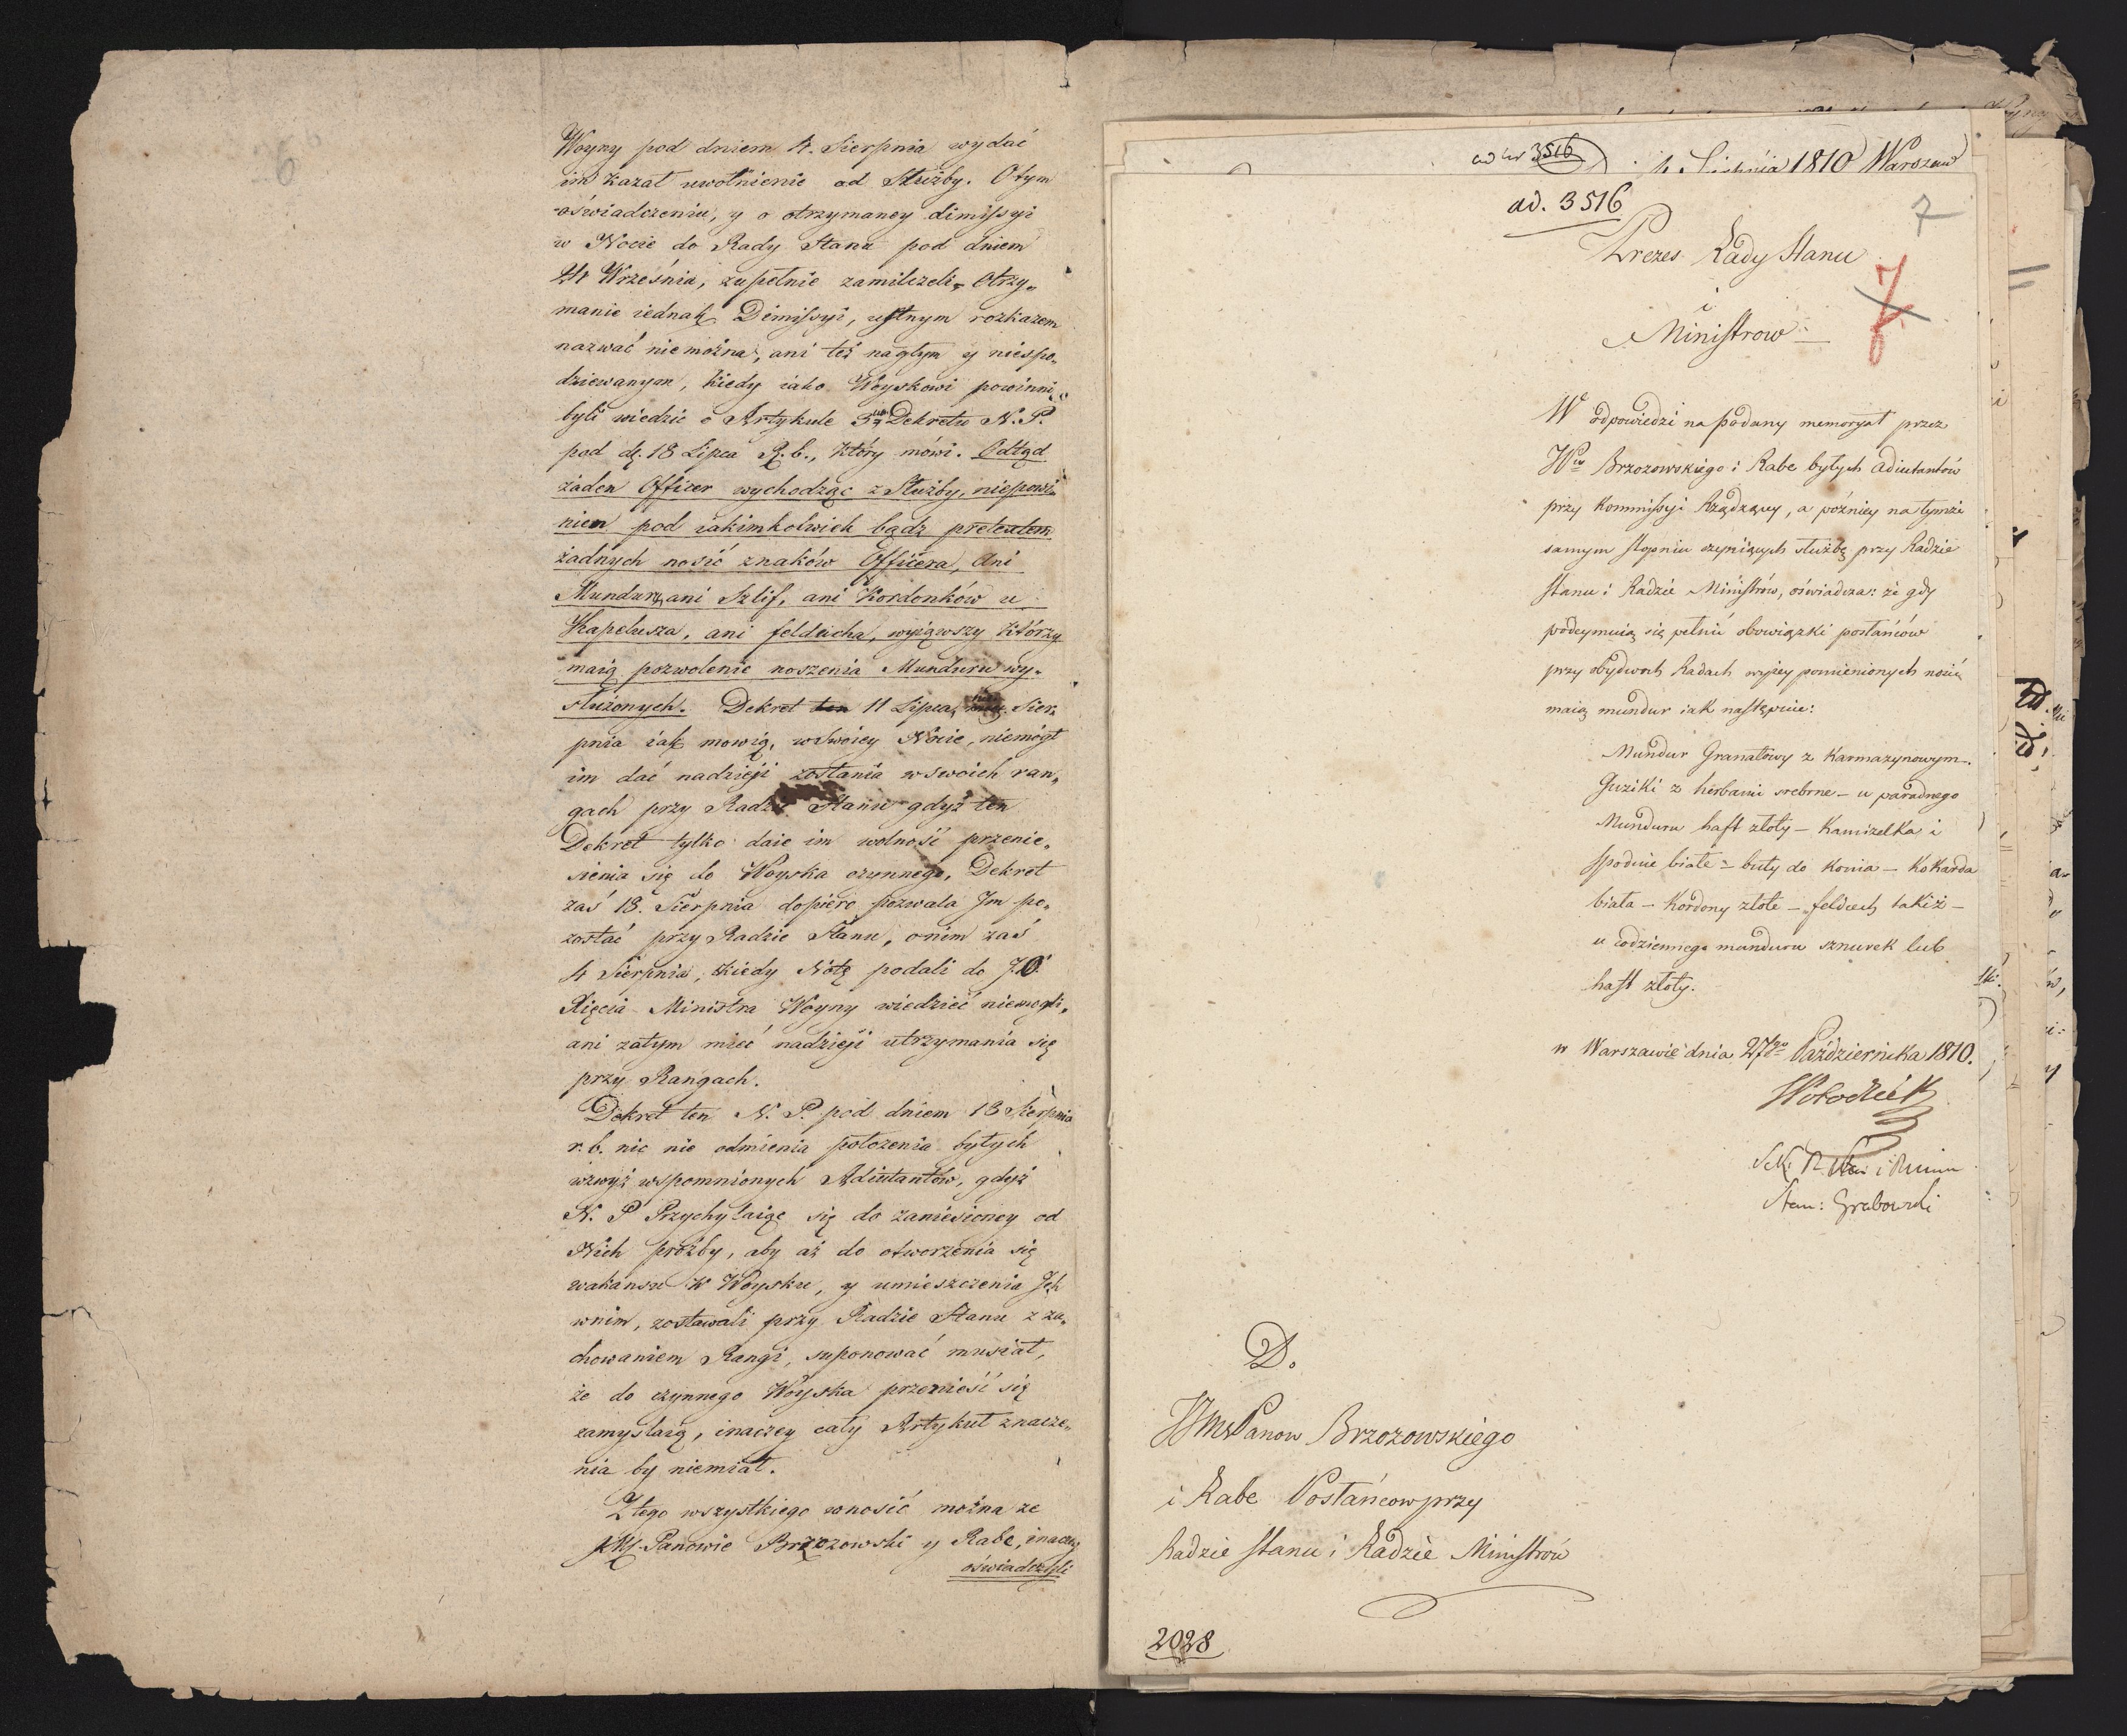 Woyny pod dniem 4. Sierpnia wydać
im kazał uwolnienie od Służby. O tym
oświadczeniu, y o otrzymaney dimissyi
w Nocie do Rady Stanu pod dniem
24 Września, zupełnie zamilczeli. Otrzy„
manie iednak Dimissyi, ustnym rozkazem
nazwać niemożna, ani też nagłym y niespo„
dziewanym, kiedy iako Woyskowi powinni
byli wiedzić o Artykule 3 Dekretu N. P.
pod d. 18 Lipca R. b., który mówi. Odtąd
żaden Officer wychodząc z Służby, niepowi„
nien pod iakimkolwiek bądz pretextem
żadnych nosić znaków Officera, Ani
Munduru, ani Szlif, ani Kordonków u
Kapelusza, ani feldcicha, wyiąwszy którzy
maią pozwolenie noszenia Munduru wy„
służonych. Dekret ten 11 Lipca, Sier„
pnia iak mowią, w Swoiey Nocie, niemógł
im dać nadzieji zostania w swoich ran„
gach przy Radzie Stanu gdyż ten
Dekret tylko daie im wolność przenie„
sienia się do Woyska czynnego, Dekret
zaś 13. Sierpnia dopiero pozwala Im po„
zostać przy Radzie Stanu, o nim zaś
4 Sierpnia, kiedy Notę podali do J.O.
Xięcia Ministra Woyny wiedzieć niemogli,
ani zatym mieć nadzieji utrzymania się
przy Rangach.
Dekret ten N. P. pod dniem 13 Sierpnia
r. b. nic nie odmienia położenia byłych
wzwyż wspomnionych Adiutantów, gdyż
N. P Przychylaiąc się do zaniesioney od
Nich proźby, aby aż do otworzenia się
wakansu w Woysku, y umieszczenia Ich
wnim, zostawali przy Radzie Stanu z za„
chowaniem Rangi, suponować musiał,
że do czynnego Woyska przenieść się
zamyślaią, inaczey cały Artykuł znacze„
nia by niemiał.
Z tego wszystkiego wnosić można ze
JW. Panowie Brzozowski y Rabe, inaczey
oświadczyli
3516
4 Stycznia 1810 Warszaw
ad. 3516
7
Prezes Rady Stanu
i
Ministrow
7
W odpowiedzi na podany memoryał przez
WW Brzozowskiego i Rabe byłych Adiutantów
przy Kommissyi Rządzący, a późniey na tymże
samym stopniu czyniących służbę przy Radzie
Stanu i Radzie Ministrów, oświadcza: że gdy
podeymuią się pełnić obowiązki posłańców
przy obydwoch Radach wyżey pomienionych nosić
maią mundur iak następuie:
Mundur Granatowy z Karmazynowym.
Guziki z herbami srebrne – u paradnego
Munduru haft złoty – Kamizelka i
spodnie białe – buty do konia – Kokarda
biała – Kordony złote – feldcech takiż –
u codziennego munduru sznurek lub
haft złoty.
w Warszawie dnia 27go Października 1810.
Sek: R. Stan i Minin
Stan: Grabowski
D.
Panow Brzozowskiego
i Rabe Posłańcow przy
Radzie Stanu i Radzie Ministrów
2028